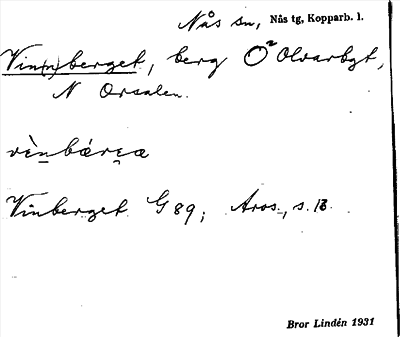 Nås sn, Nås tg, Kopparb. l.
Vin(n)berget, berg O² Olvarbgt,
N Orsalen.
vènbǽrɛa
Vinberget G 89; Aros., s. 13.
Bror Lindén 1931